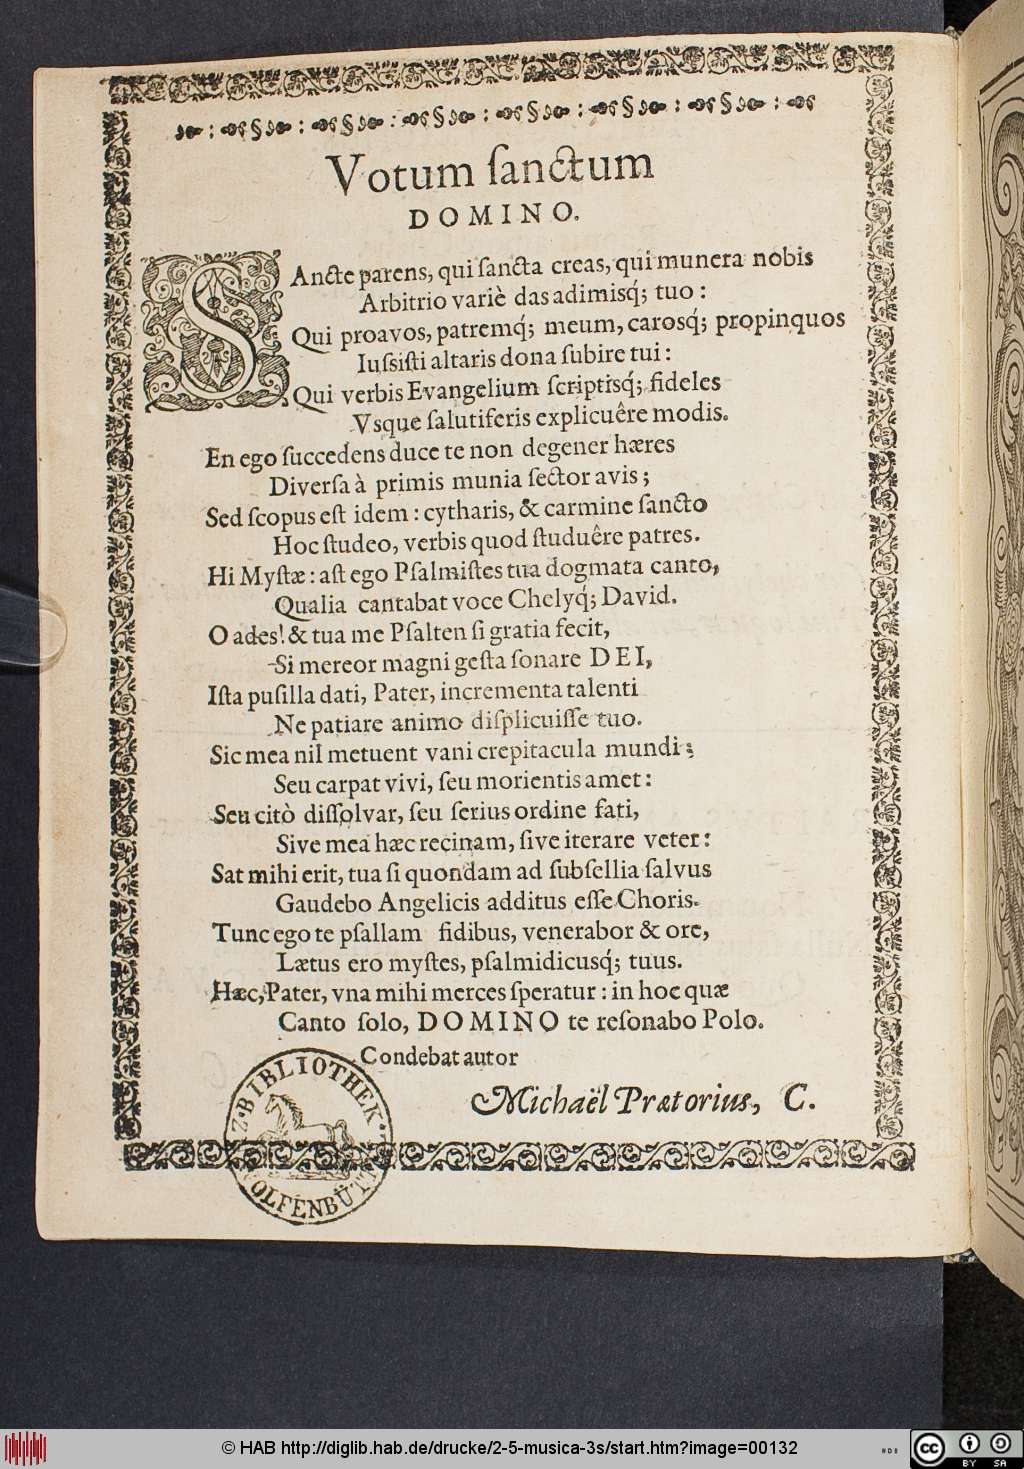 Votum ſanctum
DOMINO.
SAncte parens, qui ſancta creas, qui munera nobis
Arbitrio variè das adimisq́; tuo:
Qui proavos, patremq́; meum, carosq́; propinquos
Iuſsiſti altaris dona ſubire tui:
Qui verbis Evangelium ſcriptisq́; fideles
Vsque ſalutiferis explicuêre modis.
En ego ſuccedens duce te non degener hæres
Diverſa à primis munia ſector avis;
Sed ſcopus eſt idem: cytharis, & carmine ſancto
Hoc ſtudeo, verbis quod ſtuduêre patres.
Hi Myſtæ: aſt ego Pſalmiſtes tua dogmata canto,
Qualia cantabat voce Chelyq́; David.
O ades! & tua me Pſalten ſi gratia fecit,
Si mereor magni geſta ſonare DEI,
Iſta puſilla dati, Pater, incrementa talenti
Ne patiare animo diſplicuiſſe tuo.
Sic mea nil metuent vani crepitacula mundi;
Seu carpat vivi, ſeu morientis amet:
Seu citò diſſolvar, ſeu ſerius ordine fati,
Sive mea hæc recinam, ſive iterare veter:
Sat mihi erit, tua ſi quondam ad ſubſellia ſalvus
Gaudebo Angelicis additus eſſe Choris.
Tunc ego te pſallam fidibus, venerabor & ore,
Lætus ero myſtes, pſalmidicusq́; tuus.
Hæc, Pater, vna mihi merces ſperatur: in hoc quæ
Canto ſolo, DOMINO te reſonabo Polo.
Condebat autor
Michaël Prætorius, C.
BIBLIOTHEK
Z
OLFENBÜTT
© HAB http://diglib.hab.de/drucke/2-5-musica-3s/start.htm?image=00132
cc BY SA